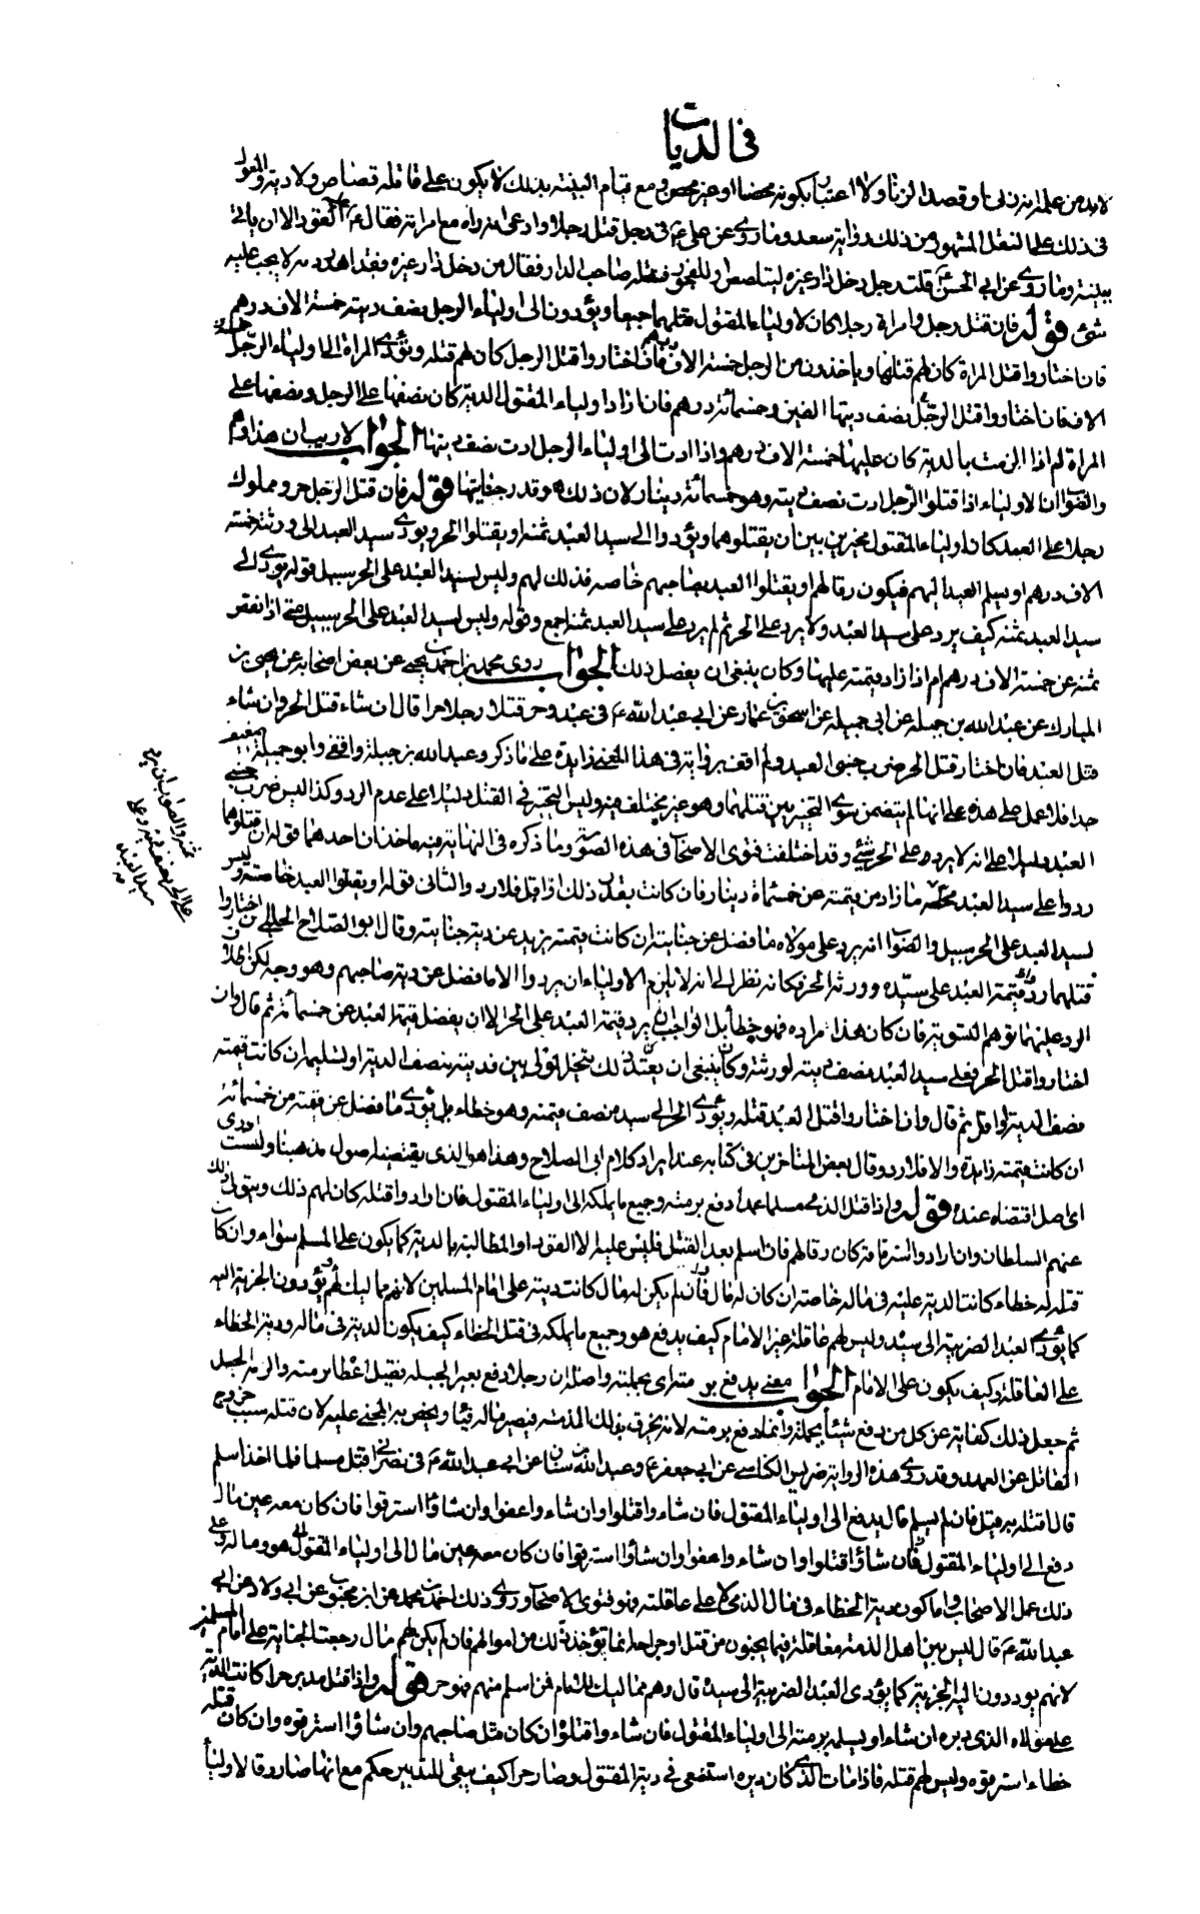 في الديات
لابد من علمه انه زنى او قصد الزنا ولا اعتبار بكونه محصنا او غير محصن ومع قيام البينة بذلك لا يكون على قاتله قصاص ولا دية والمعول
في ذلك على النقل المشهور من ذلك رواية سعد وما روي عن علي ع في رجل قتل رجلا وادعى انه راه مع امراته فقال ع عليه القود الا ان ياتي
ببينة وما روي عن ابي الحسن ع قلت رجل دخل دار غيره ليتلصص او للفجور فقتله صاحب الدار فقال من دخل دار غيره فقد اهدر دمه لا يجب عليه
شئ قوله فان قتل رجل وامراة رجلا كان لاولياء المقتول قتلهما جميعا ويؤدون الى اولياء الرجل نصف ديته خمسة الاف درهم
فان اختاروا قتل المراة كان لهم قتلها وياخذون من الرجل خمسة الاف درهم فان اختاروا قتل الرجل كان لهم قتله وتؤدي المراة الى اولياء الرجل خمسة
الاف فان اختاروا قتل الرجل نصف ديتها الفين وخمسمائة درهم فان ارادا ولياء المقتول الدية كان نصفها على الرجل ونصفها على
المراة لم اذا الزمت بالدية كان عليها خمسة الاف درهم واذا ادت الى اولياء الرجل ادت نصف ديتها الجواب لا ريب ان هذا وهم
والفتوى ان الاولياء اذا قتلوا الرجل ادت نصف ديته وهو خمسمائة دينار لان ذلك هو قدر جنايتها قوله فان قتل الرجل حر ومملوك
رجلا على العمد كان اولياء المقتول مخيرين بين ان يقتلوهما ويؤدوا الى سيد العبد ثمنه او يقتلوا الحر ويؤدي سيد العبد الى ورثته خمسة
الاف درهم او يسلم العبد اليهم فيكون رقا لهم او يقتلوا العبد بصاحبهم خاصة فذلك لهم وليس لسيد العبد على الحر سبيل قوله يؤدي الى
سيد العبد ثمنه كيف يرد على سيد العبد ولا يرد على الحر ثم لم يرد على سيد العبد ثمنه اجمع وقوله وليس لسيد العبد على الحر سبيل متى اذا نقص
ثمنه عن خمسة الاف درهم ام اذا زاد قيمته عليها وكان ينبغي ان يفصل ذلك الجواب روى محمد بن احمد بن يحيى عن بعض اصحابه عن يحيى بن
المبارك عن عبد الله بن جبلة عن ابي جميلة عن اسحق بن عمار عن ابي عبد الله ع في عبد وحر قتلا رجلا حرا قال ان شاء قتل الحر وان شاء
قتل العبد فان اختار قتل الحر ضرب جنبي العبد ولم اقف برواية في هذا المعنى زايدة على ما ذكر وعبد الله بن جبلة واقفي وابو جميلة ضعيف
جدا فلا عمل على هذه على انها لم يتضمن سوى التخيير بين قتلهما وهو غير مختلف فيه وليس التخيير في القتل دليلا على عدم الرد وكذا ليس ضرب جنبي
العبد دليلا على انه لا يرد على الحر شئ وقد اختلفت فتوى الاصحاب في هذه الصورة وما ذكره في النهاية فيه ماخذان احدهما قوله ان قتلوهما
ردوا على سيد العبد ما زاد من قيمته عن خمسمائة دينار فان كانت بقدر ذلك او اقل فلا رد والثاني قوله او يقتلوا العبد خاصة وليس
لسيد العبد على الحر سبيل والصواب انه يرد على مولاه ما فضل عن جنايته ان كانت قيمته يزيد عن دية جنايته وقال ابو الصلاح الحلبي فان اختاروا
قتلهما ردوا قيمة العبد على سيده وورثة الحر فكانه نظر الى انه لا يلزم الاولياء ان يردوا الا ما فضل عن دية صاحبهم وهو وجه لكن اطلاق
الرد عليهما يوهم التسوية فان كان هذا مراده فهو خطأ بل الواجب ان يرد قيمة العبد على الحر الا ان يفضل قيمة العبد عن خمسمائة ثم قال وان
اختاروا قتل الحر فعلى سيد العبد نصف ديته لورثته وكان ينبغي ان يعتد ذلك بتخير المولى بين فديته بنصف الدية او تسليمه ان كانت قيمته
نصف الدية او اقل ثم قال وان اختاروا قتل العبد قتله ويؤدي الحر الى سيده نصف قيمته وهو خطاء بل يؤدي ما فضل عن قيمته من خمسمائة
ان كانت قيمته زايدة والا فلا رد وقال بعض المتاخرين في كتابه عند ايراد كلام ابي الصلاح وهذا هو الذي يقتضيه اصول مذهبنا ولست ادري
اي اصل اقتضاه عنده قوله واذا قتل الذمي مسلما عمدا دفع برمته وجميع ما يملكه الى اولياء المقتول فان ارادوا قتله كان لهم ذلك ويتولى ذلك
عنهم السلطان وان ارادوا استرقاقه كان رقا لهم فان اسلم بعد القتل فليس عليه الا القود او المطالبة بالدية كما يكون على المسلم سواء وان كان
قتله له خطاء كانت الدية عليه في ماله خاصة ان كان له مال فان لم يكن له مال كانت ديته على امام المسلمين لانهم مماليك له يؤدون الجزية اليه
كما يؤدي العبد الضريبة الى سيده وليس لهم عاقلة غير الامام كيف يدفع هو وجميع ما يملكه في قتل الخطاء كيف يكون الدية في ماله ودية الخطاء
على العاقلة وكيف يكون على الامام الجواب معنى يدفع برمته اي بجملته واصله ان رجلا دفع بعيرا بحبله فقيل اعطا برمته والرمة الحبل
ثم جعل ذلك كفاية عن كل من دفع شيئا بجملته وانما دفع برمته لانه يخرق بذلك الذمة فيصير ماله فيئا ويختص به المجني عليه لان قتله سبب خروج
القاتل عن العهد وقد روى هذه الرواية ضريس الكناسي عن ابي جعفر ع وعبد الله بن سنان عن ابي عبد الله ع في نصراني قتل مسلما فلما اخذ اسلم
قال اقتله به قيل فان لم يسلم قال يدفع الى اولياء المقتول فان شاءوا قتلوا وان شاءوا عفوا وان شاؤا استرقوا فان كان معه عين مال
دفع الى اولياء المقتول فان شاؤا قتلوا وان شاءوا عفوا وان شاؤا استرقوا فان كان معه عين مال الى اولياء المقتول هو وماله وعلى
ذلك عمل الاصحاب واما كون دية الخطاء في مال الذمي لا على عاقلته فهو فتوى الاصحاب وروى ذلك احمد بن محمد عن ابن محبوب عن ابي ولاد عن ابي
عبد الله ع قال ليس بين اهل الذمة معاقلة فيما يجنون من قتل او جراحة انما تؤخذ ذلك من اموالهم فان لم يكن لهم مال رجعت الجناية على امام المسلمين
لانهم يؤدون اليه الجزية كما يؤدي العبد الضريبة الى سيده قال وهم مماليك للامام فمن اسلم منهم فهو حر قوله واذا قتل مدبر حرا كانت الدية
على مولاه الذي دبره ان شاء او يسلمه برمته الى اولياء المقتول فان شاءوا قتلوه ان كان قتل صاحبهم وان شاؤا استرقوه وان كان قتله
خطاء استرقوه وليس لهم قتله فاذا مات الذي كان دبره استسعى في دية المقتول وصار حرا كيف يبقى للتدبير حكم مع انها صار رقا لاوليا